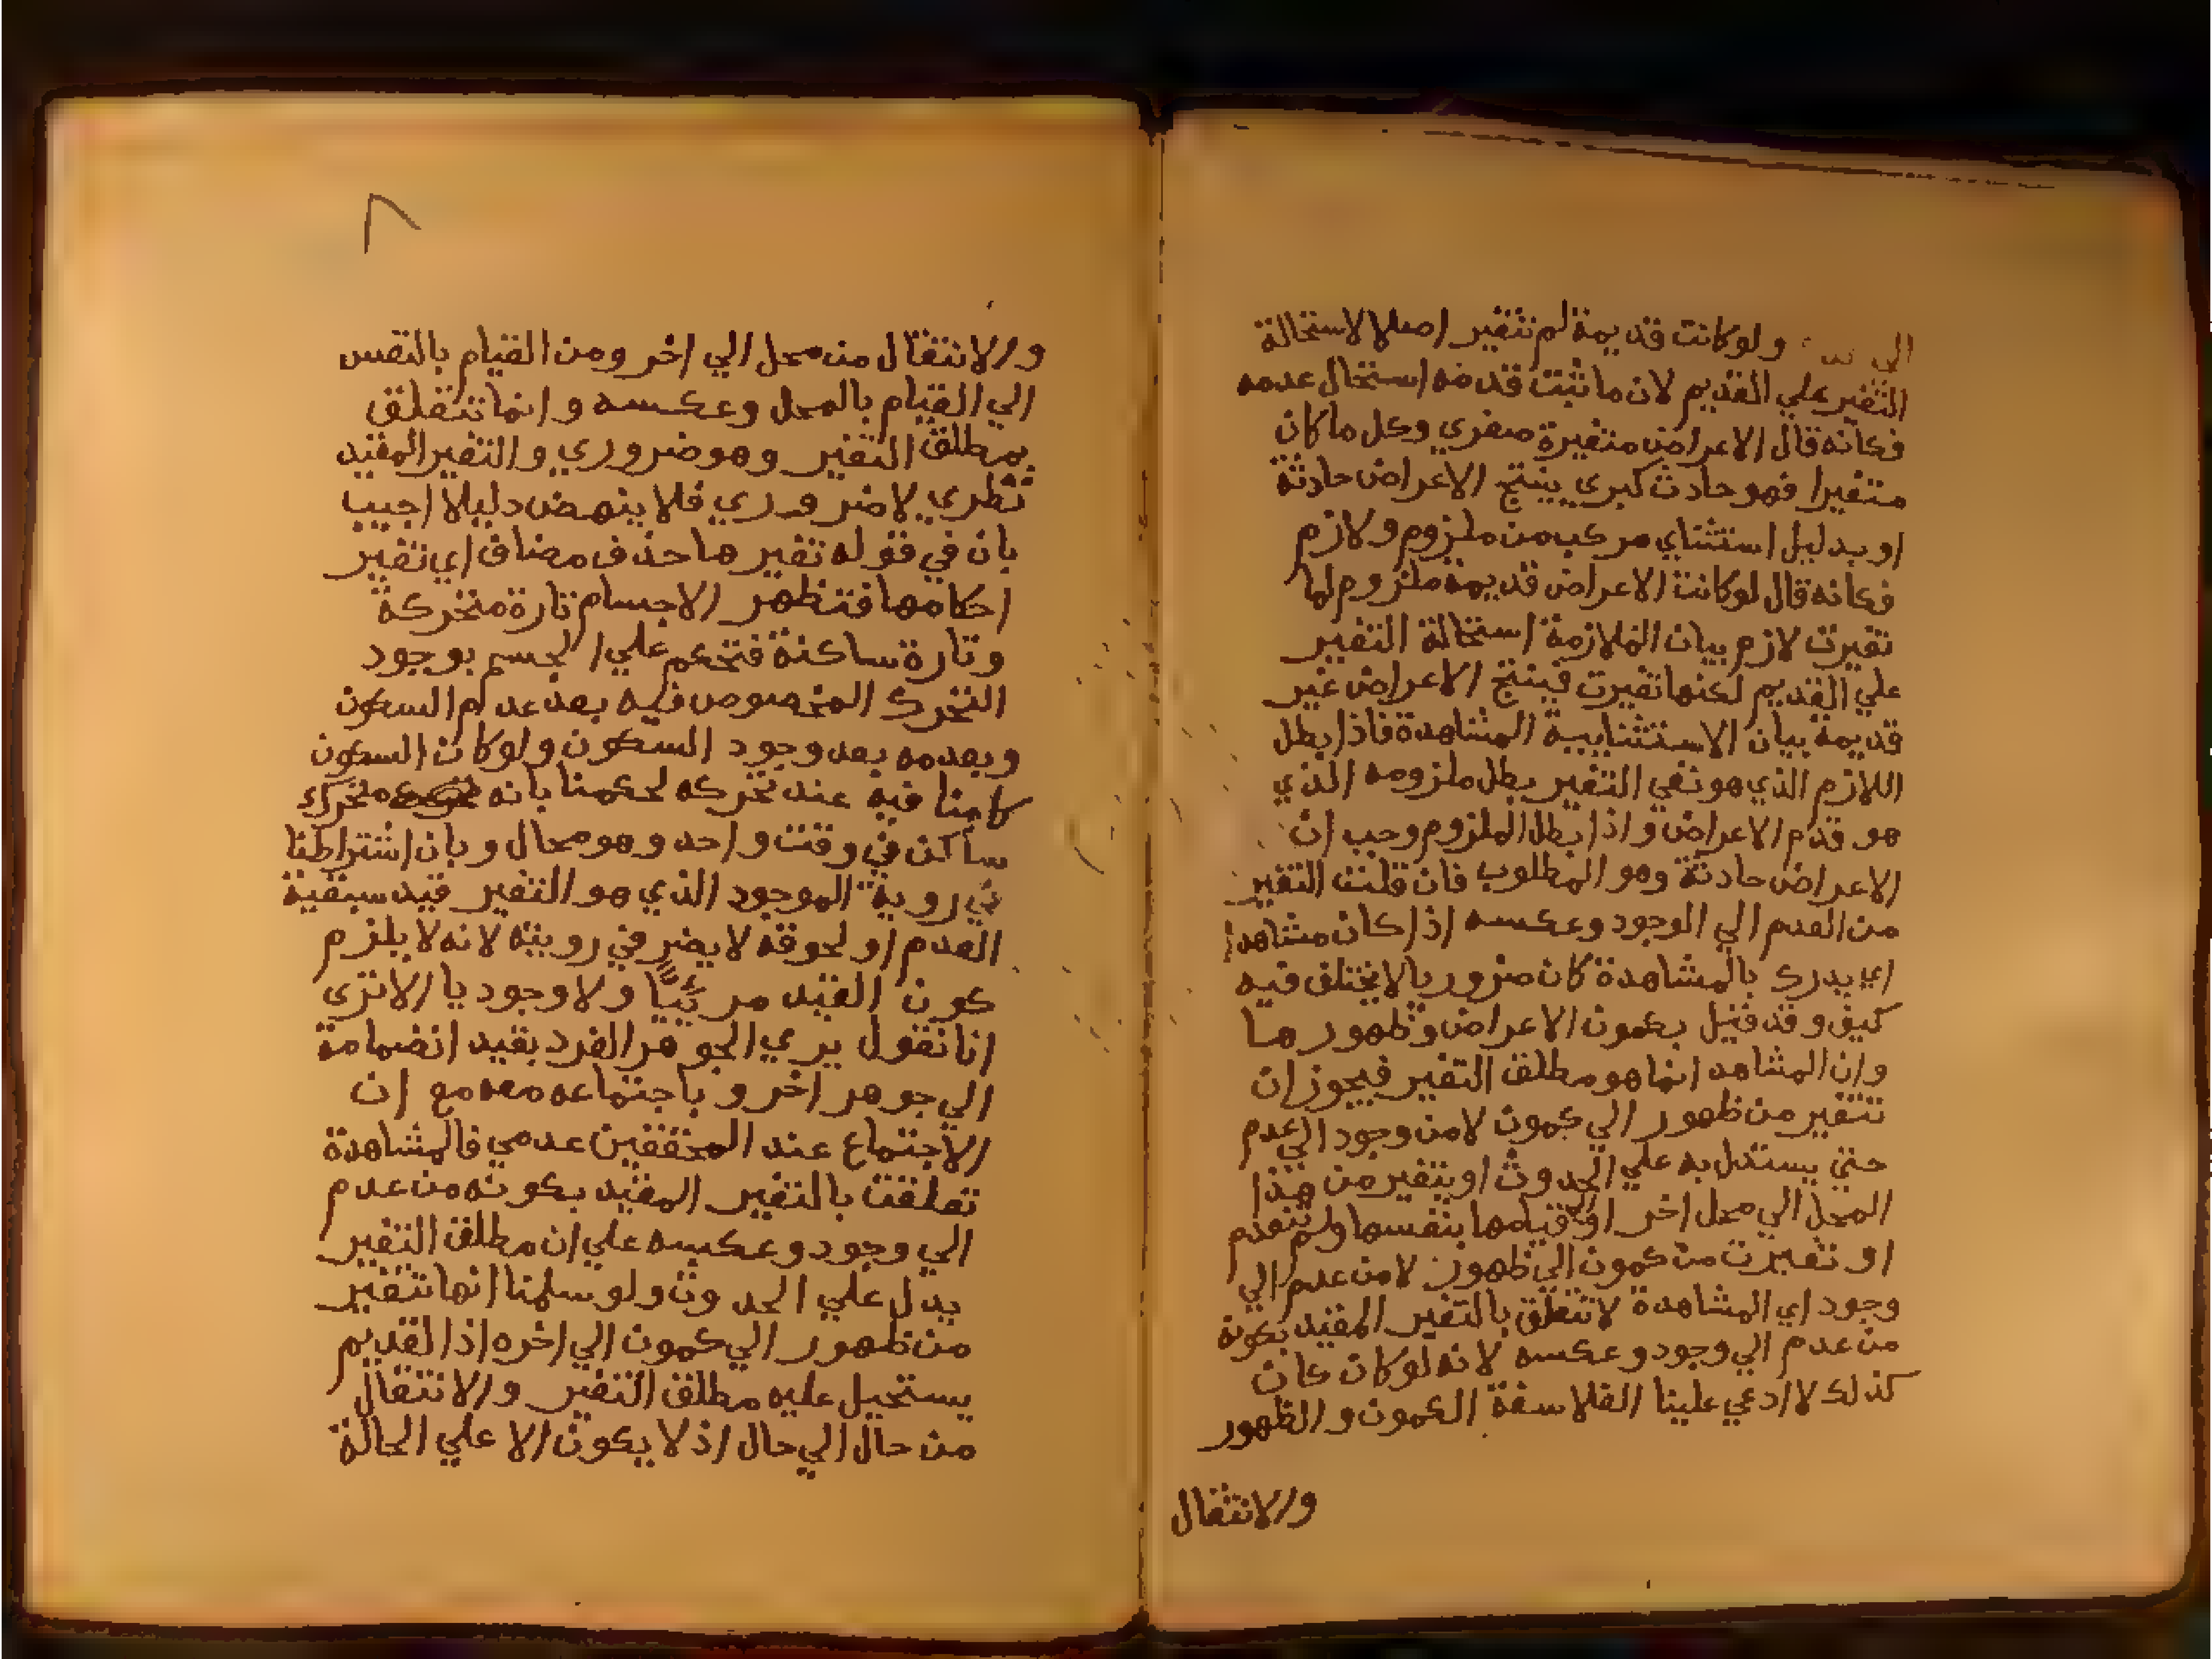 الي ولو كانت قديمة لم تتغير اصلا لاستحالة
التغير علي القديم لان ما ثبت قدمه استحال عدمه
فكانه قال الاعراض متغيرة صغري وكل ما كان
متغيرا فهو حادث كبري ينتج الاعراض حادثة
او بدليل استثناي مركب من ملزوم ولازم
فكانه قال لو كانت الاعراض قديمة ملزوم لما
تغيرت لازم بيان الملازمة استحالة التغير
علي القديم لكنها تغيرت فينتج الاعراض غير
قديمة بيان الاستثنايية المشاهدة فاذا بطل
اللازم الذي هو نفي التغير بطل ملزومه الذي
هو قدم الاعراض واذا بطل الملزوم وجب ان
الاعراض حادثة وهو المطلوب فان قلت التغير
من العدم الي الوجود وعكسه اذا كان مشاهدا
اي يدرك بالمشاهدة كان ضروريا لا يختلف فيه
كيف وقد قيل بكمون الاعراض وظهورها
وان المشاهد انما هو مطلق التغير فيجوز ان
تتغير من ظهور الي كمون لا من وجود الي عدم
حتي يستدل به علي الحدوث او يتغير من هذا
المحل الي محل اخر او الي قيامها بنفسها ولم تنعدم
او تغيرت من كمون الي ظهور لا من عدم الي
وجود اي المشاهدة لا تتعلق بالتغير المقيد بكونه
من عدم الي وجود وعكسه لانه لو كان كان
كذلك لا ادعي علينا الفلاسفة الكمون والظهور
والانتقال
٨
والانتقال من محل الي اخر ومن القيام بالنفس
الي القيام بالمحل وعكسه وانما تتعلق
بمطلق التغير وهو ضروري والتغير المقيد
نظري لا ضروري فلا ينهض دليلا اجيب
بان في قوله تغيرها حذف مضاف اي تغير
احكامها فتظهر الاجسام تارة متحركة
وتارة ساكنة فتحكم علي الجسم بوجود
التحرك المخصوص فيه بعد عدم السكون
وبعدمه بعد وجود السكون ولو كان السكون
كامنا فيه عند تحركه لحكمنا بانه متحرك
ساكن في وقت واحد وهو محال وبان اشتراطنا
في روية الموجود الذي هو التغير قيد سبقية
العدم او لحوقه لا يضر في رويته لانه لا يلزم
كون القيد مرئيا ولا وجوديا الا تري
انا نقول يري الجوهر الفرد بقيد انضمامه
الي جوهر اخر وباجتماعه معه مع ان
الاجتماع عند المحققين عدمي فالمشاهدة
تعلقت بالتغير المقيد بكونه من عدم
الي وجود وعكسه علي ان مطلق التغير
يدل علي الحدوث ولو سلمنا انها تتغير
من ظهور الي كمون الي اخره اذ القديم
يستحيل عليه مطلق التغير والانتقال
من حال الي حال اذ لا يكون الا علي الحالة